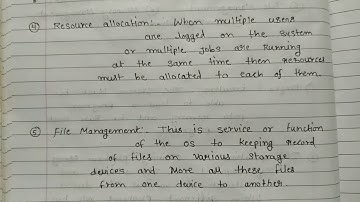 ④ Resource allocation:. When multiple users
are logged on the system
or multiple jobs are running
at the same time then resources
must be allocated to each of them.
⑤ File Management:. This is service or function
of the os to keeping record
of files on various storage
devices and move all these files
from one device to another.